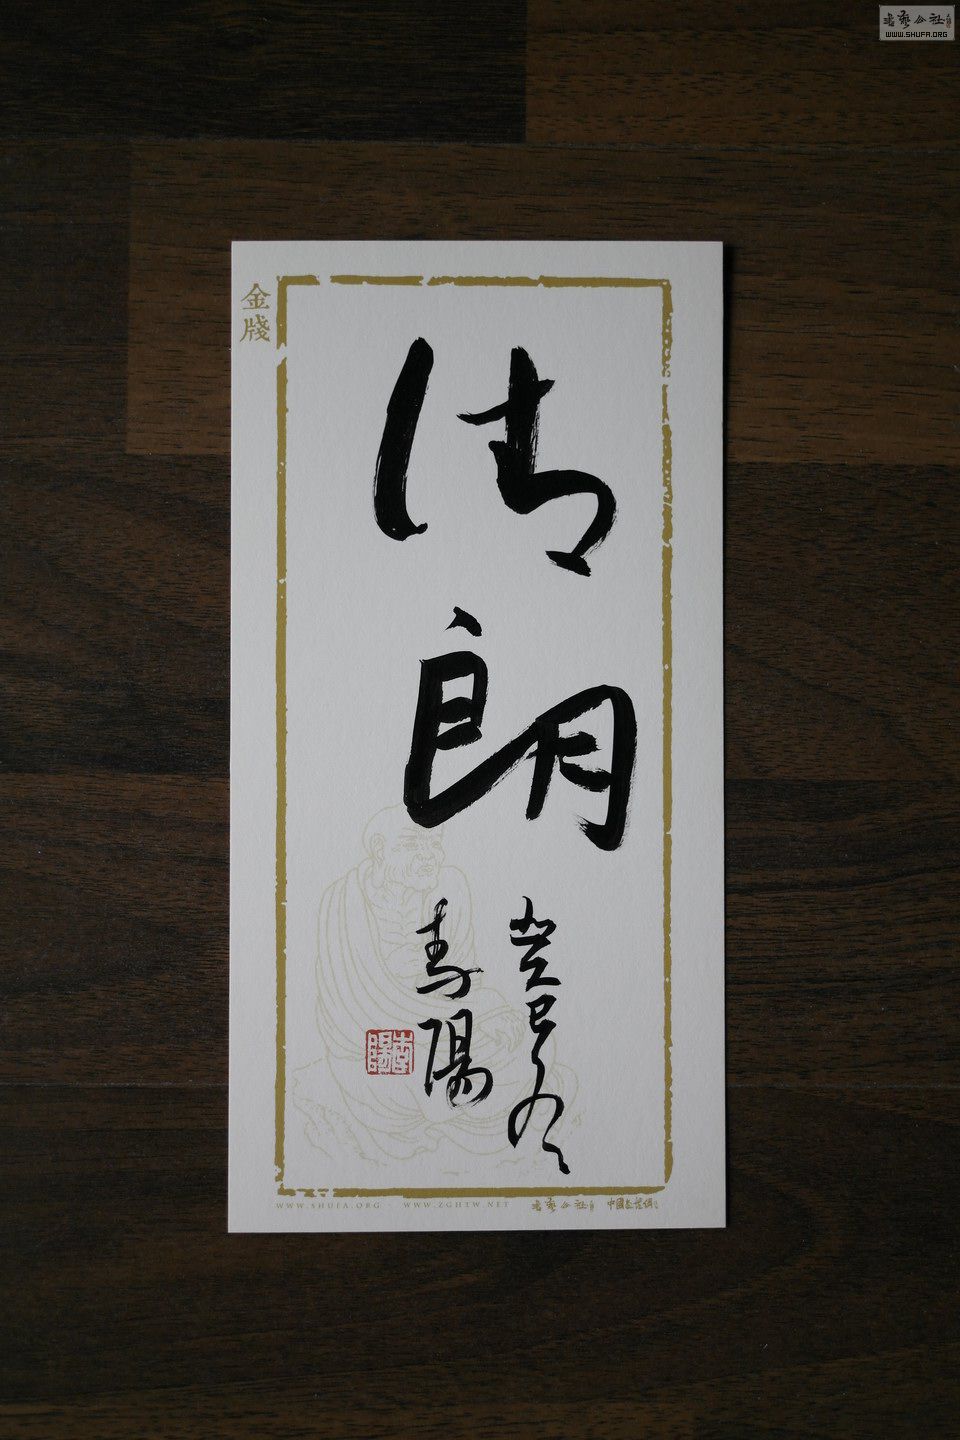 書藝公社
WWW.SHUFA.ORG
金牋
清朗
癸巳冬
寿陽
WWW.SHUFA.ORG · WWW.ZGHTW.NET 書藝公社